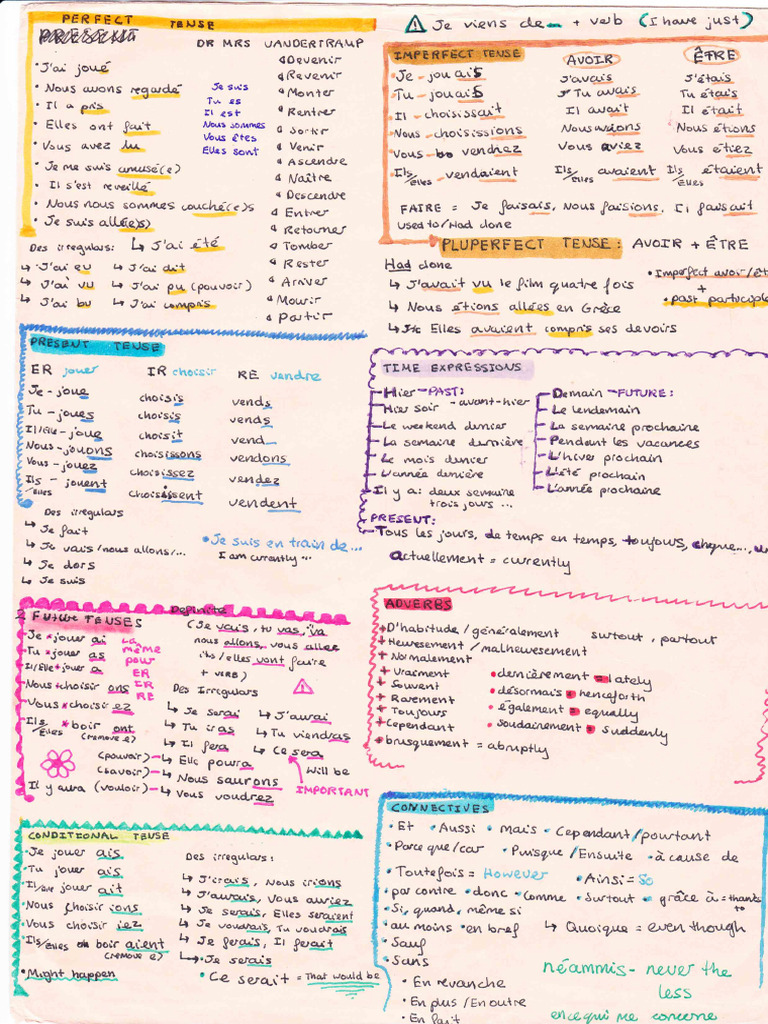 PERFECT TENSE
DR MRS VANDERTRAMP
• J'ai joué
• Nous avons regardé
• Il a pris
• Elles ont fait
• Vous avez lu
• Je me suis amusé(e)
• Il s'est reveillé
• Nous nous sommes couché(e)s
• Je suis allé(e)s)
Je suis
Tu es
Il est
Nous sommes
Vous êtes
Elles sont
Devenir
Revenir
Monter
Rentrer
Sortir
Venir
Ascendre
Naître
Descendre
Entrer
Retourner
Tomber
Rester
Arriver
Mourir
Partir
Des irregulars: ↳ J'ai été
↳ J'ai eu ↳ J'ai dit
↳ J'ai vu ↳ J'ai pu (pouvoir)
↳ J'ai bu ↳ J'ai compris
⚠ Je viens de... + verb (I have just)
IMPERFECT TENSE AVOIR ÊTRE
Je - jouais J'avais J'étais
Tu - jouais Tu avais Tu étais
Il - choisissait Il avait Il était
Nous - choisissions Nous avions Nous étions
Vous - vendrez Vous aviez Vous étiez
Ils/Elles - vendaient Ils/Elles avaient Ils/Elles étaient
FAIRE = Je faisais, Nous faisions, Il faisait
Used to/Had done
PLUPERFECT TENSE: AVOIR + ÊTRE
Had done
↳ J'avait vu le film quatre fois
↳ Nous étions allées en Grèce
↳ Elles avaient compris ses devoirs
• Imperfect avoir/êt
+
• past participle
PRESENT TENSE
ER jouer IR choisir RE vendre
Je - joue choisis vends
Tu - joues choisis vends
Il/Elle - joue choisit vend
Nous - jouons choisissons vendons
Vous - jouez choisissez vendez
Ils/elles - jouent choisissent vendent
Des irregulars
↳ Je fait
↳ Je vais/nous allons/...
↳ Je dors
↳ Je suis
• Je suis en train de...
I am currently...
TIME EXPRESSIONS
Hier - PAST:
Hier soir - avant-hier
Le weekend dernier
La semaine dernière
Le mois dernier
L'année dernière
Il y a: deux semaine
trois jours ...
Demain - FUTURE:
Le lendemain
La semaine prochaine
Pendant les vacances
L'hiver prochain
L'été prochain
L'année prochaine
PRESENT:
Tous les jours, de temps en temps, toujours,
actuellement = currently
2 FUTURE TENSES
Je * jouer ai
Tu * jouer as
Il/Elle * jouer a
Nous * choisir ons
Vous * choisir ez
Ils/Elles * boir ont
(remove e)
La même pour ER IR RE
Definite
(Je vais, tu vas, va
nous allons, vous aller
ils/elles vont faire
+ VERB)
Des Irregulars
↳ Je serai ↳ J'aurai
↳ Tu iras ↳ Tu viendras
↳ Il fera ↳ Ce sera
(pouvoir) ↳ Elle pourra
will be
(savoir) ↳ Nous saurons
IMPORTANT
Il y aura (vouloir) ↳ Vous voudrez
ADVERBS
+ D'habitude / généralement surtout, partout
+ Heureusement / malheureusement
+ Normalement
+ Vraiment
+ Souvent
+ Rarement
+ Toujours
+ Cependant
+ brusquement = abruptly
• dernièrement = lately
• désormais = henceforth
• également = equally
• soudairement = suddenly
CONDITIONAL TENSE
• Je jouer ais
• Tu jouer ais
• Il/Elle jouer ait
• Nous choisir ions
• Vous choisir iez
• Ils/Elles boir aient
(remove e)
• Might happen
Des irregulars:
↳ J'irais, Nous irions
↳ J'aurais, Vous auriez
↳ Je serais, Elles seraient
↳ Je voudrais, Tu voudrais
↳ Je ferais, Il ferait
↳ Je serais
• Ce serait = That would be
CONNECTIVES
• Et • Aussi • Mais • Cependant/pourtant
• Parce que/car • Puisque /Ensuite • à cause de
• Toutefois = However • Ainsi = So
• par contre • donc • Comme • Surtout • grâce à = thanks to
• Si, quand, même si
• au moins • en bref ↳ Quoique = even though
• Sauf
• Sans
• En revanche
• En plus / En outre
• En fait
néammis - never the less
en ce qui me concerne